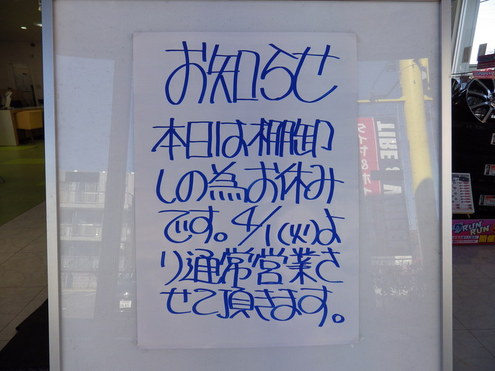 お知らせ
本日は棚卸
しの為お休み
です。4/1(火)よ
り通常営業さ
せて頂きます。
TIRE
RUN
RUN